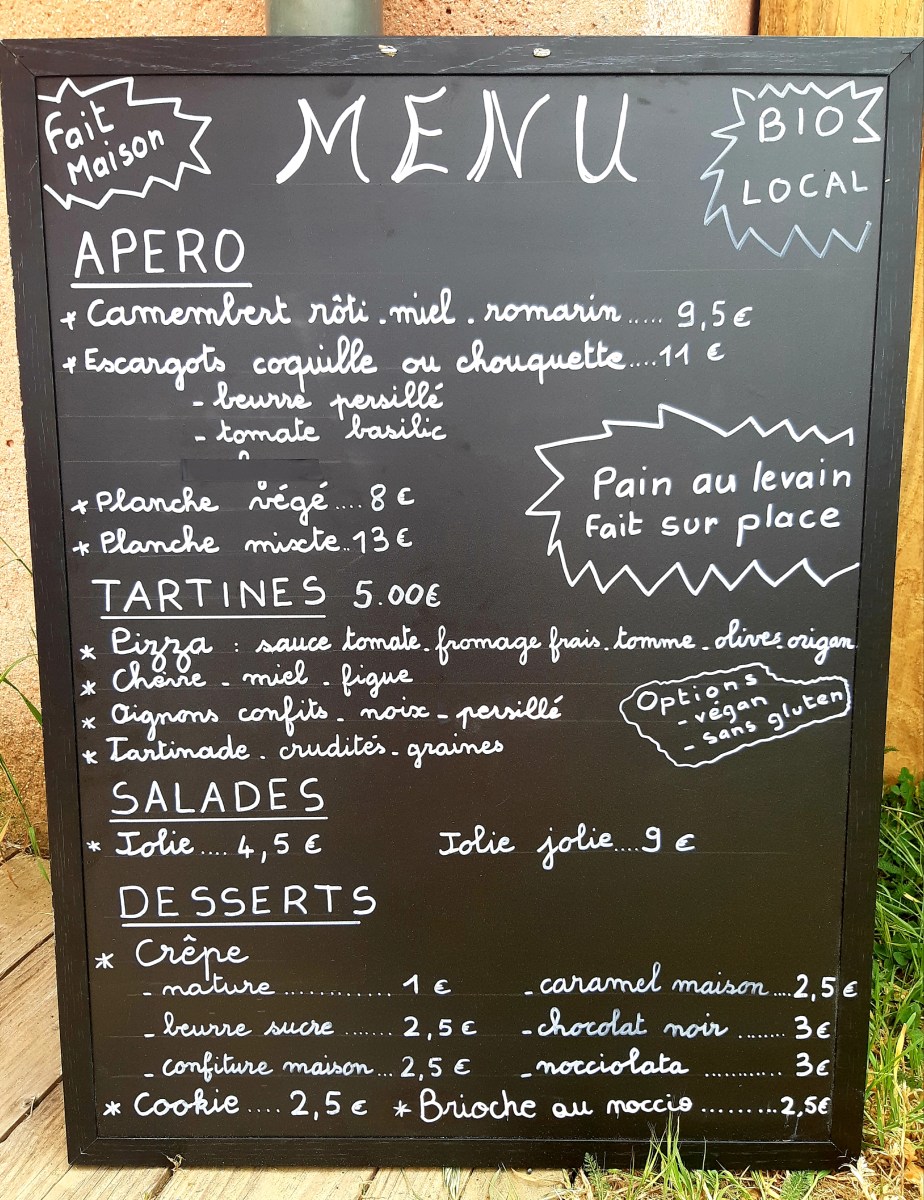 Fait
Maison
MENU
BIO
LOCAL
APERO
* Camembert rôti . miel . romarin ..... 9,5 €
* Escargots coquille ou chouquette....11 €
- beurre persillé
- tomate basilic
* Planche végé .... 8 €
* Planche mixte..13 €
Pain au levain
Fait sur place
TARTINES 5.00€
* Pizza : sauce tomate . fromage frais . tomme . olives . origan
* Chèvre . miel . figue
* Oignons confits . noix - persillé
* Tartinade . crudités . graines
Options
- végan
- sans gluten
SALADES
* Jolie .... 4,5 €
Jolie jolie....9 €
DESSERTS
* Crêpe
- nature ............ 1 €
- caramel maison ....2,5 €
- beurre sucre ....... 2,5 €
- chocolat noir ........ 3€
- confiture maison ... 2,5 €
- nocciolata ............ 3€
* Cookie .... 2,5 €
* Brioche au noccio .........2,5€